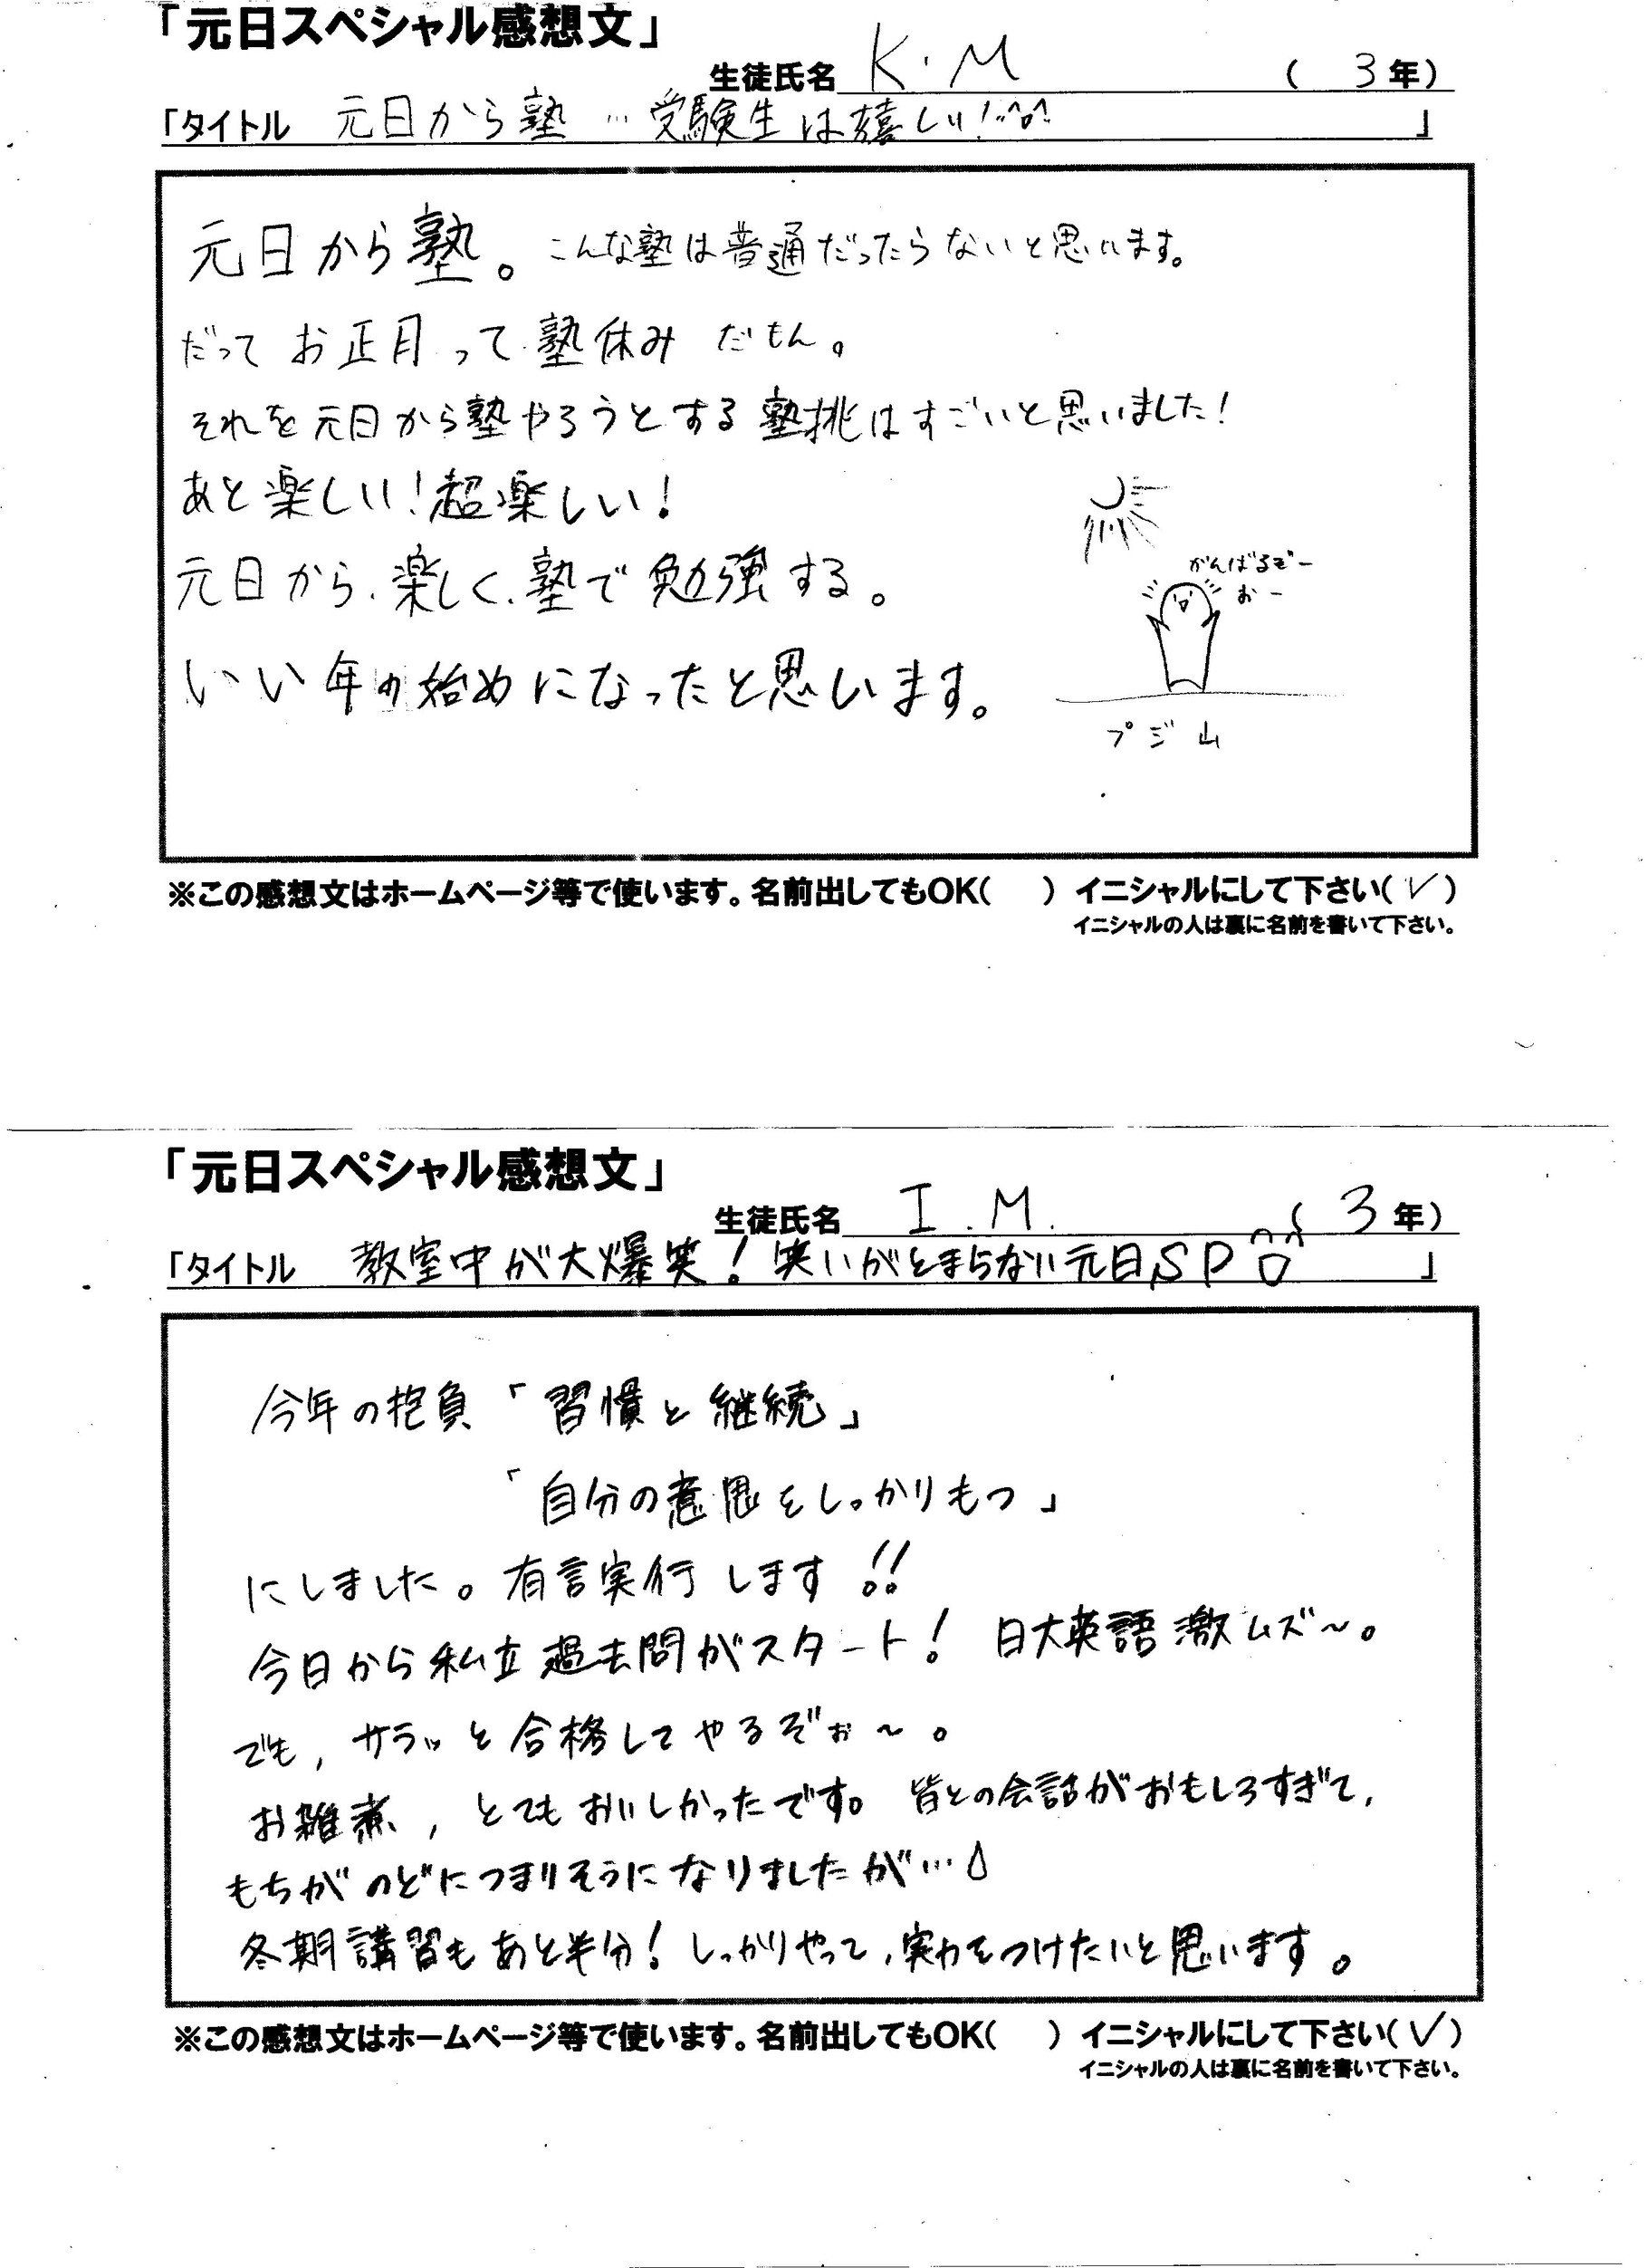 「元日スペシャル感想文」
生徒氏名 K.M (3年)
「タイトル 元日から塾…受験生は嬉しい!^o^」
元日から塾。こんな塾は普通だったらないと思います。
だってお正月って塾休みだもん。
それを元日から塾やろうとする塾挑はすごいと思いました!
あと楽しい!超楽しい!
元日から、楽しく、塾で勉強する。
いい年の始めになったと思います。
がんばるぞー
おー
プジ山
※この感想文はホームページ等で使います。名前出してもOK( ) イニシャルにして下さい(✓)
イニシャルの人は裏に名前を書いて下さい。
「元日スペシャル感想文」
生徒氏名 I.M. (3年)
「タイトル 教室中が大爆笑!笑いがとまらない元日SP」
今年の抱負「習慣と継続」
「自分の意思をしっかりもつ」
にしました。有言実行します!!
今日から私立過去問がスタート! 日大英語激ムズ~。
でも,サラッと合格してやるぞぉ~。
お雑煮,とてもおいしかったです。皆との会話がおもしろすぎて,
もちがのどにつまりそうになりましたが…
冬期講習もあと半分!しっかりやって,実力をつけたいと思います。
※この感想文はホームページ等で使います。名前出してもOK( ) イニシャルにして下さい(✓)
イニシャルの人は裏に名前を書いて下さい。